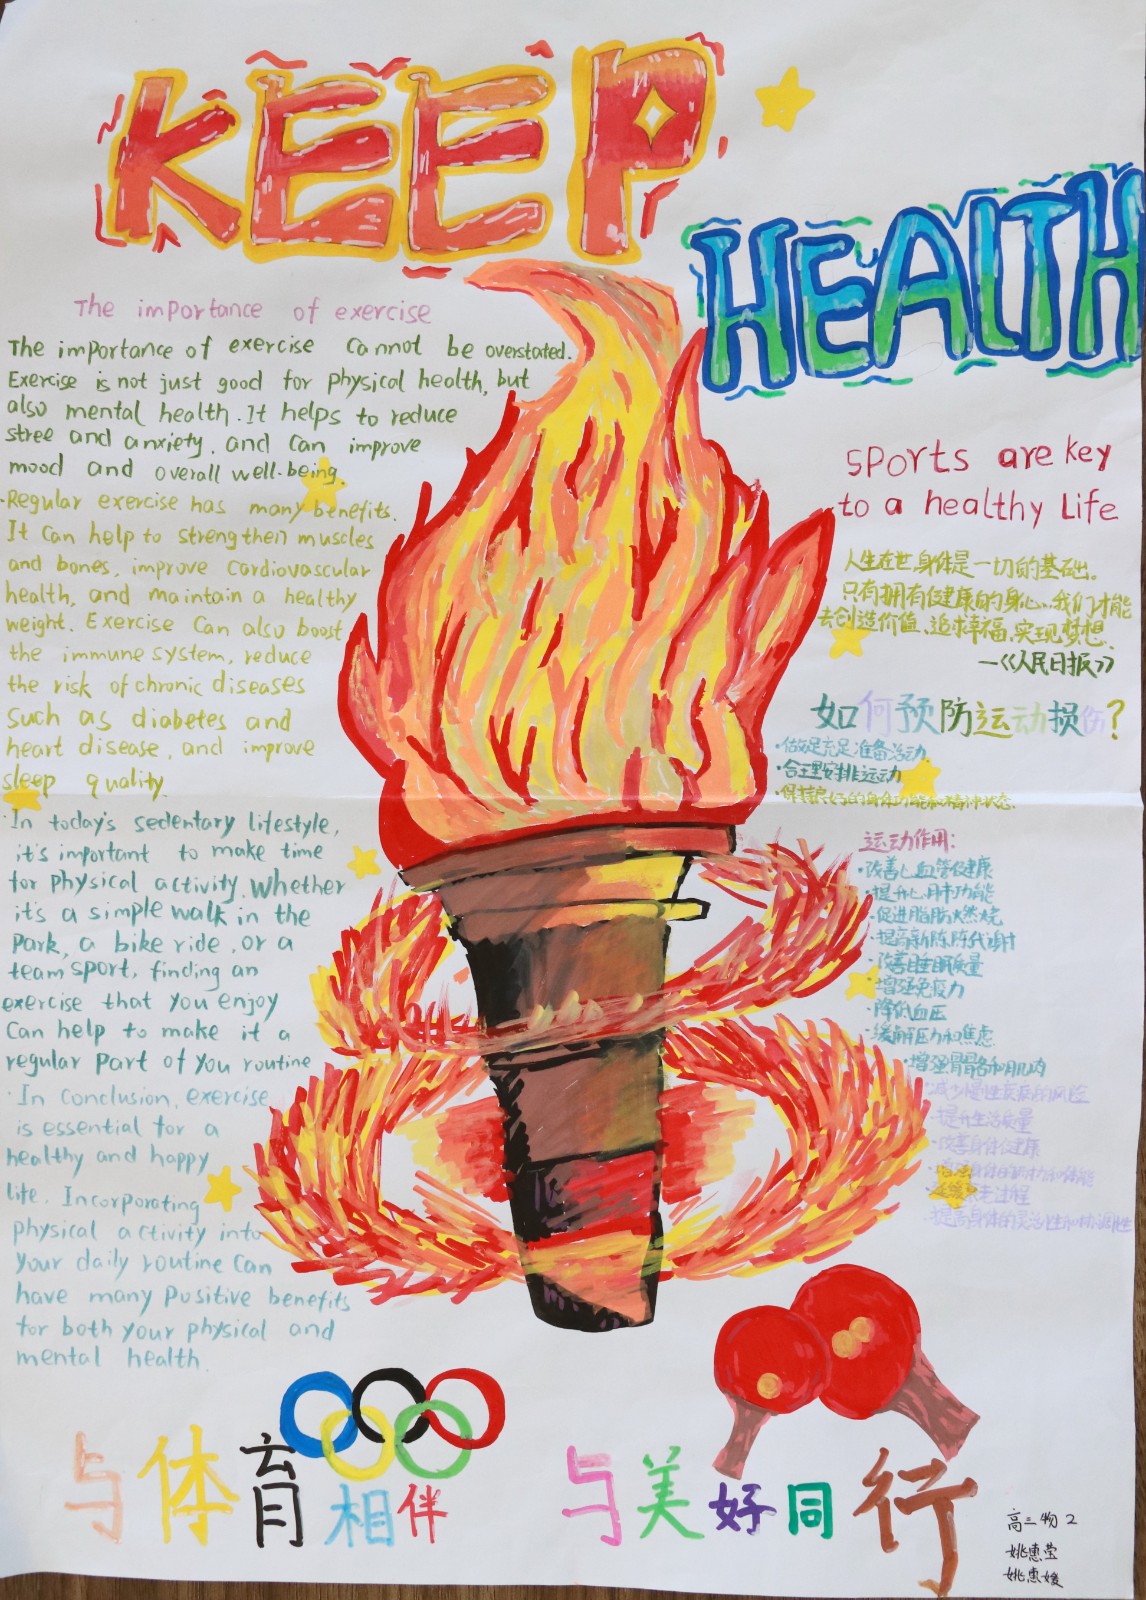 KEEP
HEALTH
The importance of exercise
The importance of exercise cannot be overstated.
Exercise is not just good for physical health, but
also mental health. It helps to reduce
stree and anxiety, and can improve
mood and overall well-being.
·Regular exercise has many benefits.
It can help to strengthen muscles
and bones, improve cardiovascular
health, and maintain a healthy
weight. Exercise can also boost
the immune system, reduce
the risk of chronic diseases
such as diabetes and
heart disease, and improve
sleep quality.
·In today's sedentary lifestyle,
it's important to make time
for physical activity. Whether
it's a simple walk in the
park, a bike ride, or a
team sport, finding an
exercise that you enjoy
can help to make it a
regular part of you routine
·In conclusion, exercise
is essential for a
healthy and happy
life. Incorporating
physical activity into
your daily routine can
have many pusitive benefits
for both your physical and
mental health.
Sports are key
to a healthy life
人生在世,身体是一切的基础。
只有拥有健康的身心,我们才能
去创造价值、追求幸福、实现梦想.
—《人民日报》
如何预防运动损伤?
·做足充足准备活动.
·合理安排运动
·保持良好的身体功能和精神状态.
运动作用:
·改善心血管健康
·提升心肺功能
·促进脂肪燃烧
·提高新陈代谢
·改善睡眠质量
·增强免疫力
·降低血压
·缓解压力和焦虑
·增强骨骼和肌肉
·减少慢性疾病的风险
·提升生活质量
·改善身体健康
·增强身体的耐力和体能
·延缓衰老过程
·提高身体的灵活性和协调性
与体育相伴
与美好同行
高三物2
姚惠莹
姚惠媛